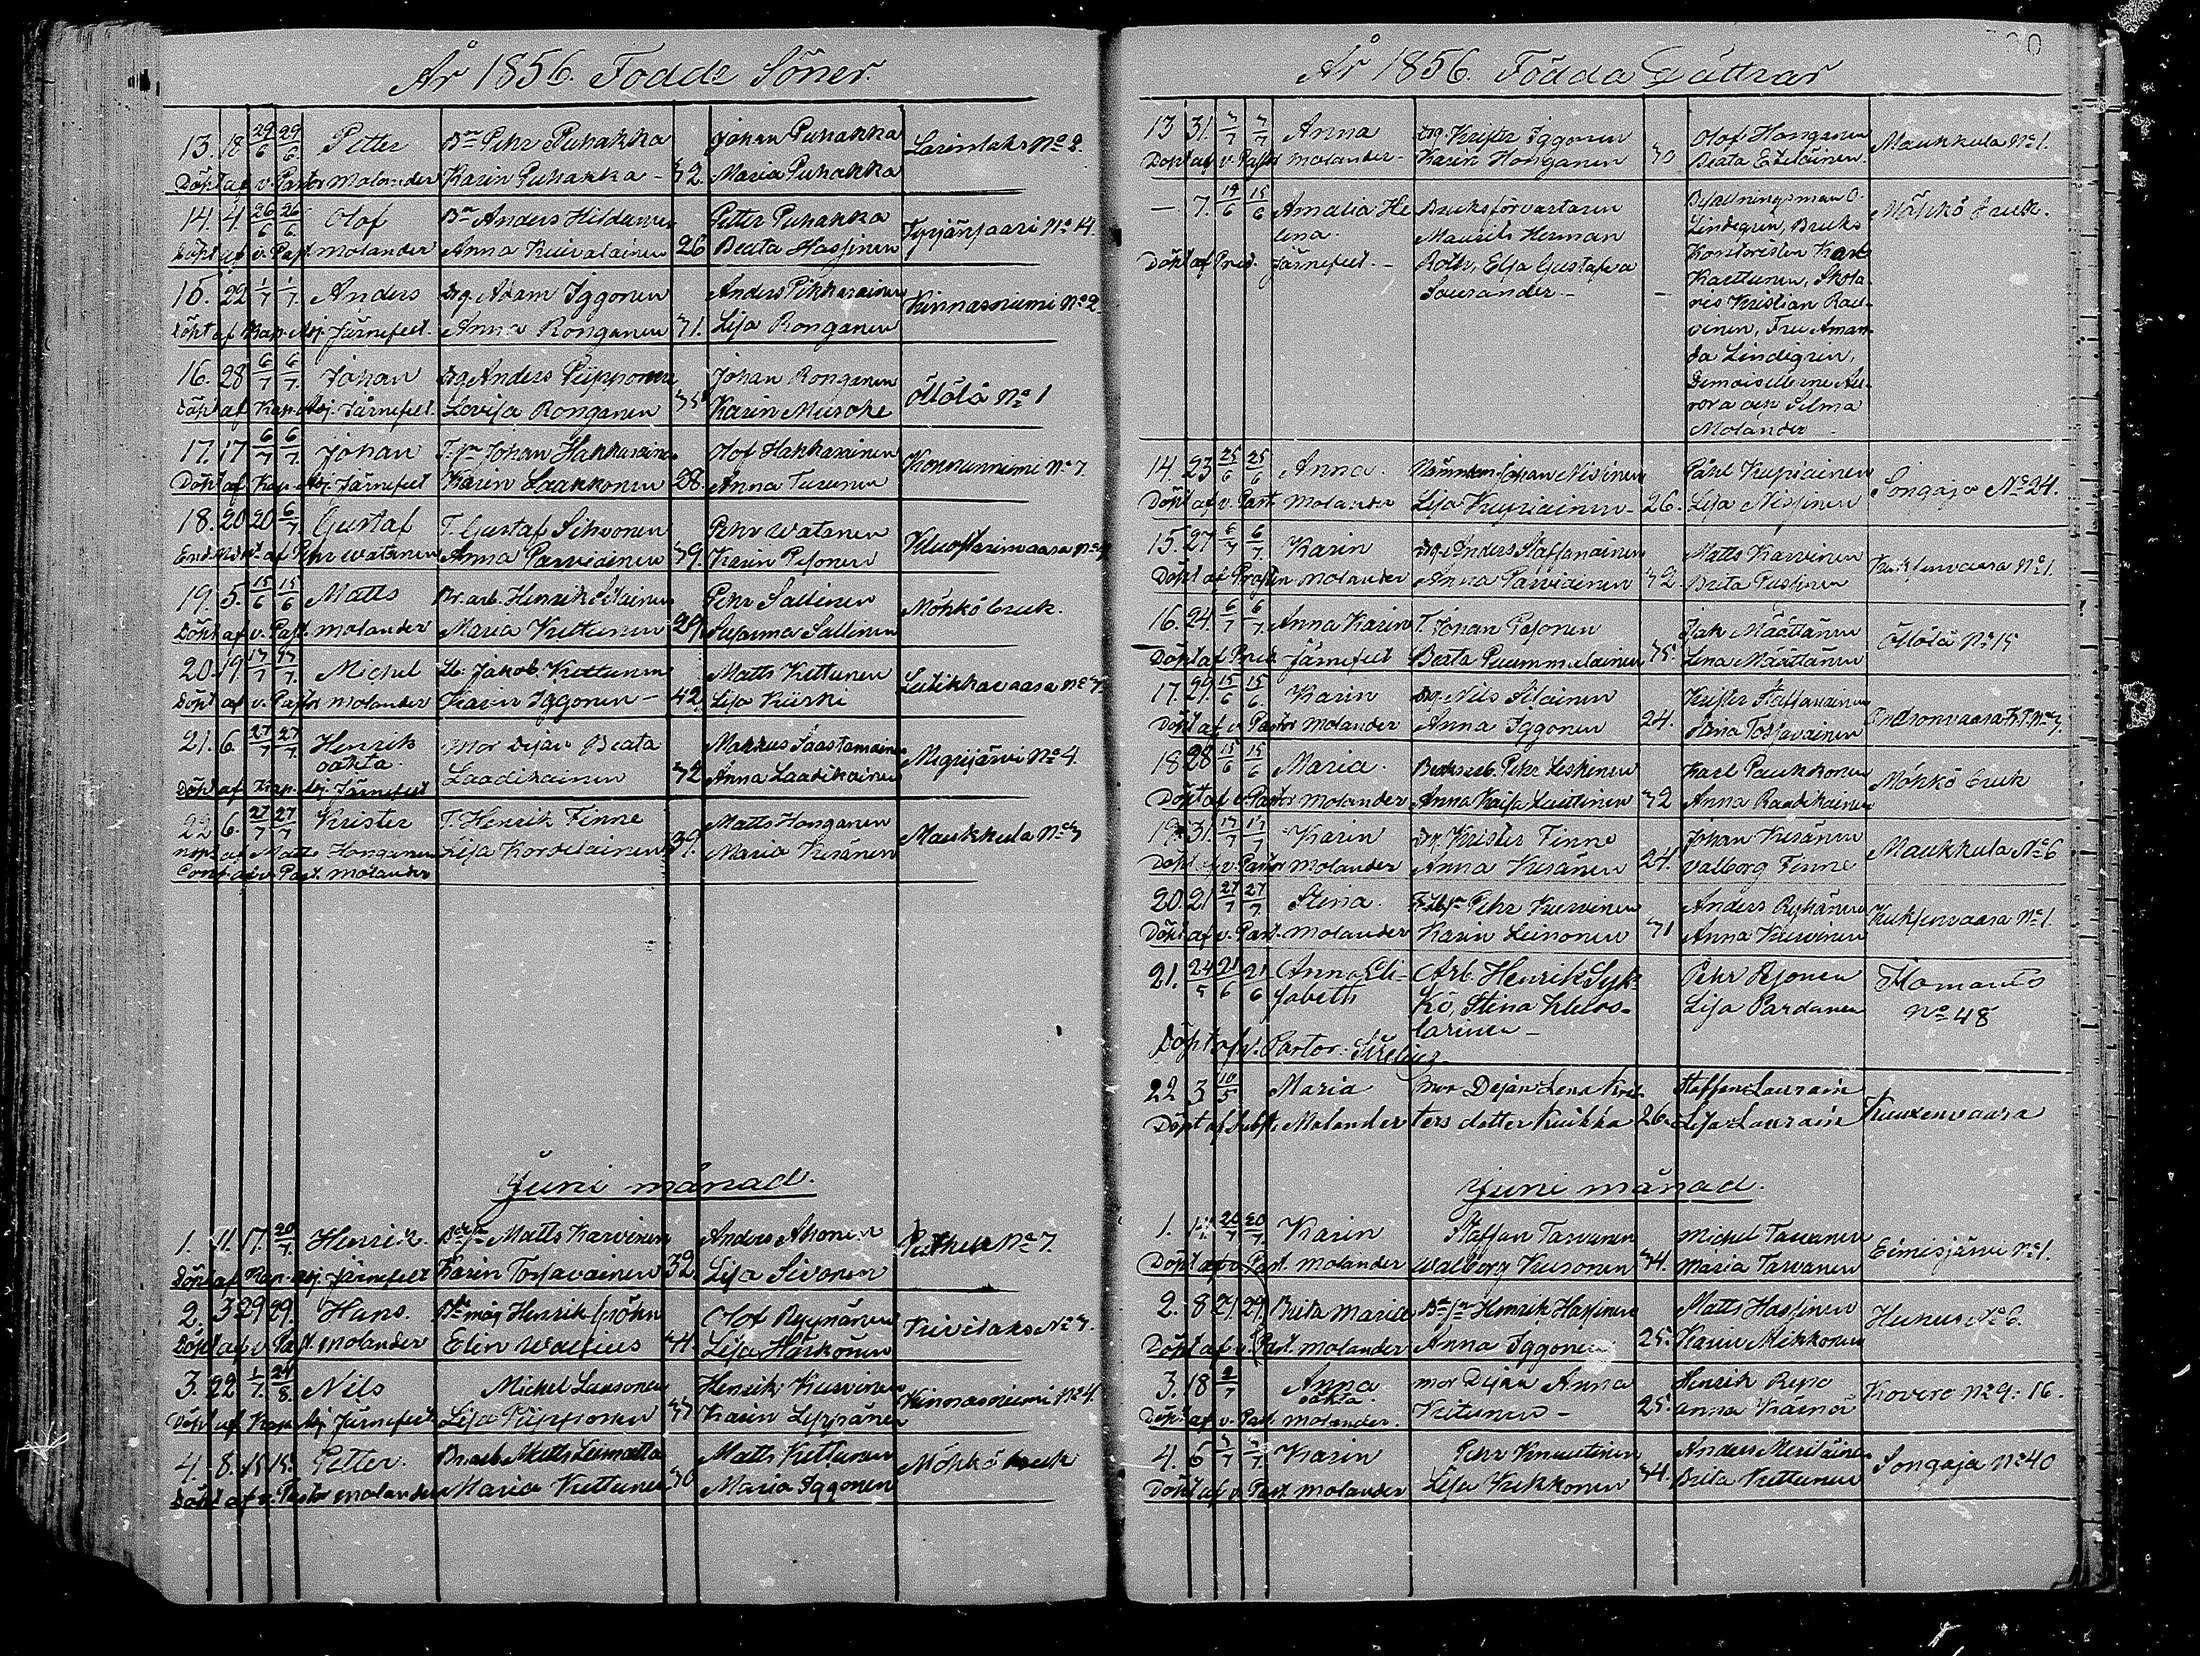 År 1856. Födde Söner.
13. 18 29/6 29/6. Petter Bn Pehr Puhakka Johan Puhakka Larinlaks No 2.
Döpt af v. Pastor Molander Karin Puhakka - 32 Maria Puhakka
14. 4 26/6 26/6 Olof Bn Anders Hildunen Petter Puhakka No 14.
Döpt af v. Past. Molander Anna Kuivalainen 26 Beata Hassinen
15. 22 1/7 1/7. Anders Drg. Adam Iggonen Anders Pikkarainen Kinnasniemi No 2
Döpt af Kap. Adj. Järnefelt. Anna Ronganen 31. Lisa Ronganen
16. 28 6/7 6/7. Johan Drg. Anders Piipponen Johan Ronganen Öllölä No 1
Döpt af Kap. Adj. Järnefelt. Lovisa Ronganen 35 Karin
17. 17 6/7 6/7. Johan Johan Hakkarainen Olof Hakkarainen Korkunniemi No 7
Döpt af Kap. Adj. Järnefelt Karin Laakkonen 28. Anna Turunen
18. 20 20 6/7 Gustaf T. Gustaf Sihvonen Pehr Watanen
af Pehr Watanen Anna Parviainen 39. Karin Pesonen
19. 5. 15/6 15/6 Matts Br. arb. Henrik Silainen Pehr Sallinen Möhkö bruk.
Döpt af v. Past. Molander Maria Kettunen 29. Susanna Sallinen
20. 19 17/7 17/7. Michel Jakob Kettunen Matts Kettunen Leilikkavaara No 7
Döpt af v. Pastor Molander Karin Iggonen - 42 Lisa Kiiski
21. 6. 27/7 27/7. Henrik Mor Dejan Beata Markus Saastamoinen Megrijärvi No 4.
oäkta. Laadikainen 32 Anna Laadikainen
Döpt af Kap. Adj. Järnefelt
22 6. 27/7 27/7 Krister T. Henrik Finne Matts Honganen Maukkula No 3
af Matts Honganen Lisa Korvelainen 39. Maria Kiesänen
Past. Molander
Juni månad.
1. 11. 17. 20/7. Henrik. Matts Karvinen Anders Ahonen No 7.
Döpt af Kap. Adj. Järnefelt Karin Tossavainen 32. Lisa Sivonen
2. 3 29 29. Hans. Henrik Olof Ryynänen Kivilaks No 7.
Döpt af v. Past. Molander Elin Wallius 34. Lisa Härkönen
3. 22 1/7. 24/8 Nils Michel Larsonen Henrik Kurvinen Kinnasniemi No 4.
Döpt af Kap. Adj. Järnefelt. Lisa Piipponen 37 Karin Leppänen
4. 8. 15 15. Petter. Br. arb. Matts Matts Kettunen Möhkö bruk
Döpt af v. Pastor Molander Maria Kettunen 30 Maria Iggonen
År 1856. Födda Döttrar
13 31. 3/7 3/7 Anna Drg. Krister Iggonen Olof Honganen Maukkula No 1.
Döpt af v. Pastor Molander - Karin Honganen 30 Beata Eteläinen.
— 7. 14/6 15/6 Amalia He Bruksförvaltaren Befallningsman O. Möhkö bruk.
lena. Maurits Herman Lindegren, Bruks
Döpt af Pred. Järnefelt. - Roth, Elsa Gustafva Kontoristen Karl
Saurander - — Kaettunen, Skola
res Kristian Rau-
vinen, Fru Aman
da Lindegrin,
Demoisellerne Au-
rora och Selma
Molander
14. 23 25/6 25/6 Anna. Nämndem. Johan Nissinen Påhl Kupiainen Songaja No 24.
Döpt af v. Past. Molander Lisa Kupiainen - 26. Lisa Nissinen
15. 27 6/7 6/7. Karin Drg. Anders Staffanainen Matts Karvinen No 1.
Döpt af Prosten Molander Anna Parviainen 32 Brita Pussinen
16. 24. 6/7 6/7. Anna Karin T. Johan Pesonen Jak Määttänen Öllölä No 15
Döpt af Pred. Järnefelt Beata Puummalainen 35. Lena Määttänen
17. 29. 15/6 15/6. Karin Drg. Nils Silainen Krister Staffanainen
Döpt af v. Pastor Molander Anna Iggonen 24. Stina Tossavainen
18 28 15/6 15/6 Maria. Bruksarb. Pehr Leskinen Karl Paukkonen Möhkö bruk
Döpt af v. Pastor Molander Anna Kaisa Luttinen 32 Anna Raadikainen
19. 31 17/7 17/7 Karin Drg. Krister Finne Johan Kiesänen Maukkula No 6
Döpt af v. Pastor Molander Anna Kiesänen 24. Valborg Finne
20. 21 27/7 27/7 Stina. Pehr Kurvinen Anders Ryhänen No 1.
Döpt af v. Past. Molander Karin Leinonen 31 Anna Kurvinen
21. 24/5 21/6 21/6 Anna Eli- Arb. Henrik Syk- Pehr Lisa Pardanen Ilomants
sabeth kö, Stina Kluos- No 48
tarinen -
Döpt af v. Pastor
22 3 10/5 Maria Mor Dejan Lena Kris- Staffan Laurain Kuuxenvaara
Döpt af Molander ters dotter Kuikka 26. Lisa Laurain
Juni månad.
1. 20/7 20/7. Karin Staffan Tarvanen Michel Tarvanen Eimisjärvi No 1.
Döpt af v. Past. Molander Walborg Kusonen 34. Maria Tarvanen
2. 8 29 29. Brita Maria Henrik Hassinen Matts Hassinen No 6.
Döpt af v. Past. Molander Anna Iggonen 25. Karin Mikkonen
3. 18 2/7 Anna Mor Dejan Anna Henrik Repo Kovero No 9: 16.
oäkta. Kettunen - 25. Anna
Döpt af v. Past. Molander.
4. 6 3/7 3/7 Karin Pehr Knuutinen Anders Meriläinen Songaja No 40
Döpt af v. Past. Molander Lisa Kukkonen 34. Brita Kettunen